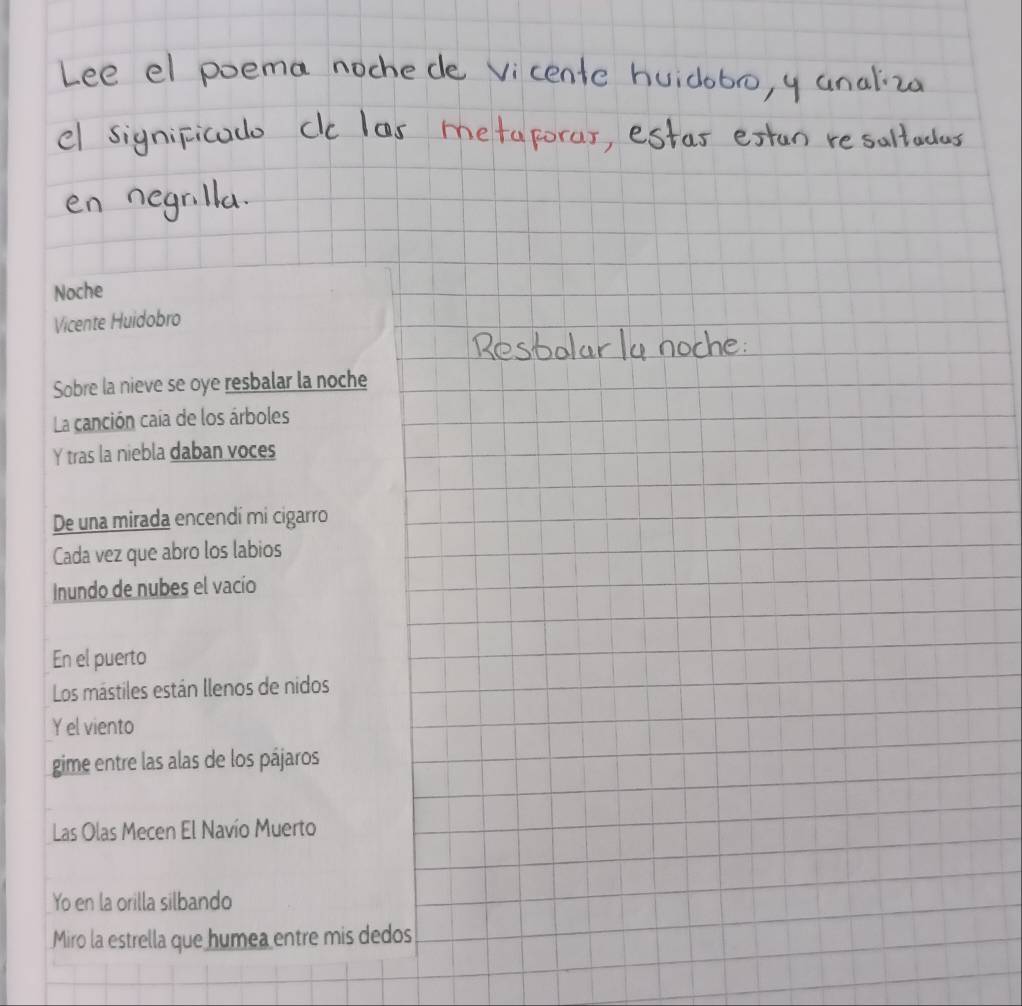 Lee el poema noche de vicente huidobro, y analiza
el significado de las metaforas, estas estan resaltadas
en negrilla.
Noche
Vicente Huidobro
Resbalar la noche:
Sobre la nieve se oye resbalar la noche
La canción caía de los árboles
Y tras la niebla daban voces
De una mirada encendí mi cigarro
Cada vez que abro los labios
Inundo de nubes el vacío
En el puerto
Los mástiles están llenos de nidos
Y el viento
gime entre las alas de los pájaros
Las Olas Mecen El Navío Muerto
Yo en la orilla silbando
Miro la estrella que humea entre mis dedos